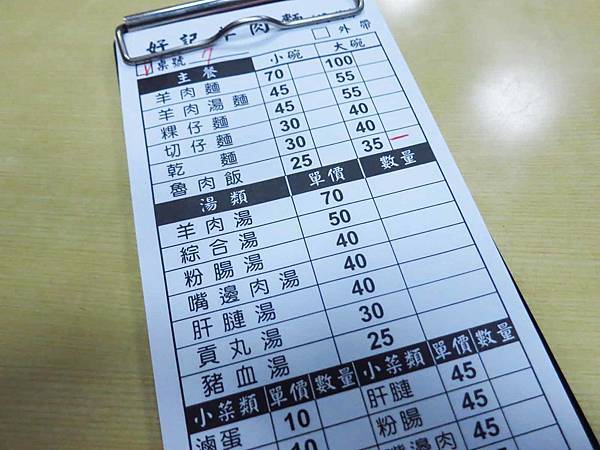 好記羊肉麵
桌號 7 外帶
主餐 小碗 大碗
羊肉麵 70 100
羊肉湯麵 45 55
粿仔麵 45 55
切仔麵 30 40
乾麵 30 40
魯肉飯 25 35
湯類 單價 數量
羊肉湯 70
綜合湯 50
粉腸湯 40
嘴邊肉湯 40
肝腱湯 40
貢丸湯 30
豬血湯 25
小菜類 單價 數量 小菜類 單價 數量
滷蛋 10 肝腱 45
10 粉腸 45
嘴邊肉 45